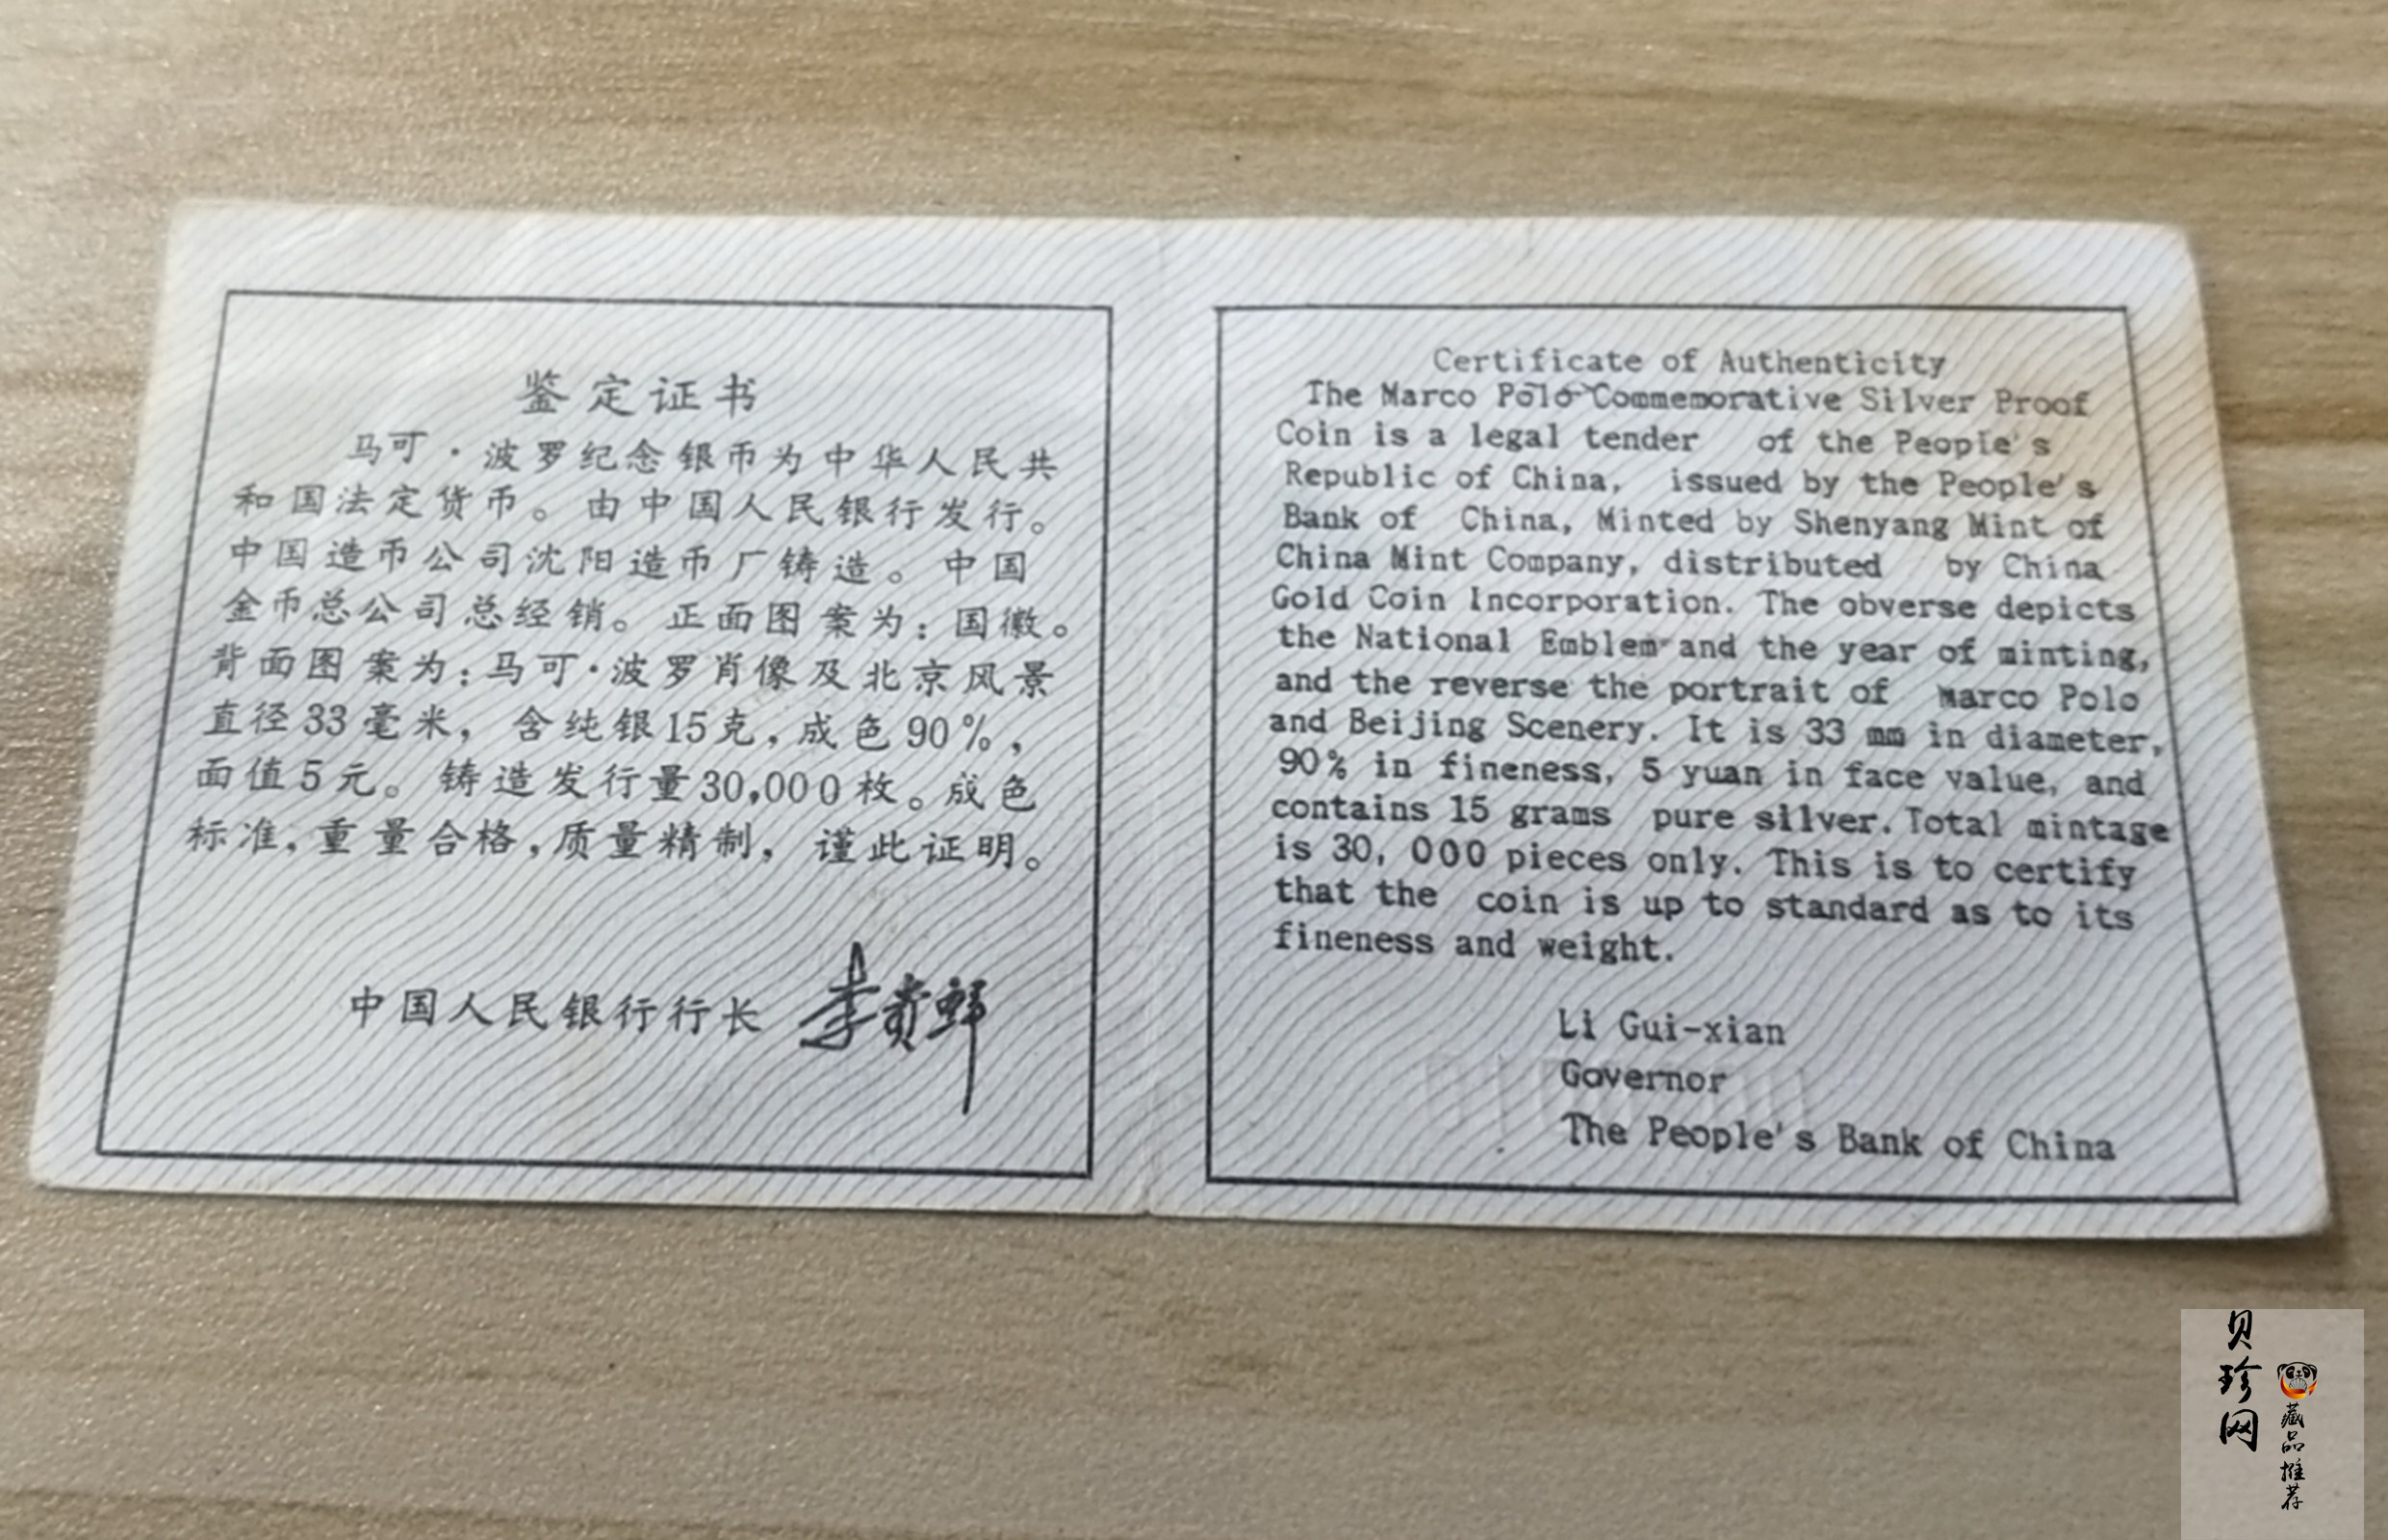 鉴定证书
马可·波罗纪念银币为中华人民共
和国法定货币。由中国人民银行发行。
中国造币公司沈阳造币厂铸造。中国
金币总公司总经销。正面图案为:国徽。
背面图案为:马可·波罗肖像及北京风景
直径33毫米,含纯银15克,成色90%,
面值5元。铸造发行量30,000枚。成色
标准,重量合格,质量精制,谨此证明。
中国人民银行行长 李贵鲜
Certificate of Authenticity
The Marco Polo Commemorative Silver Proof
Coin is a legal tender of the People's
Republic of China, issued by the People's
Bank of China, Minted by Shenyang Mint of
China Mint Company, distributed by China
Gold Coin Incorporation. The obverse depicts
the National Emblem and the year of minting,
and the reverse the portrait of Marco Polo
and Beijing Scenery. It is 33 mm in diameter,
90% in fineness, 5 yuan in face value, and
contains 15 grams pure silver. Total mintage
is 30, 000 pieces only. This is to certify
that the coin is up to standard as to its
fineness and weight.
Li Gui-xian
Governor
The People's Bank of China
贝珍网
藏品推荐